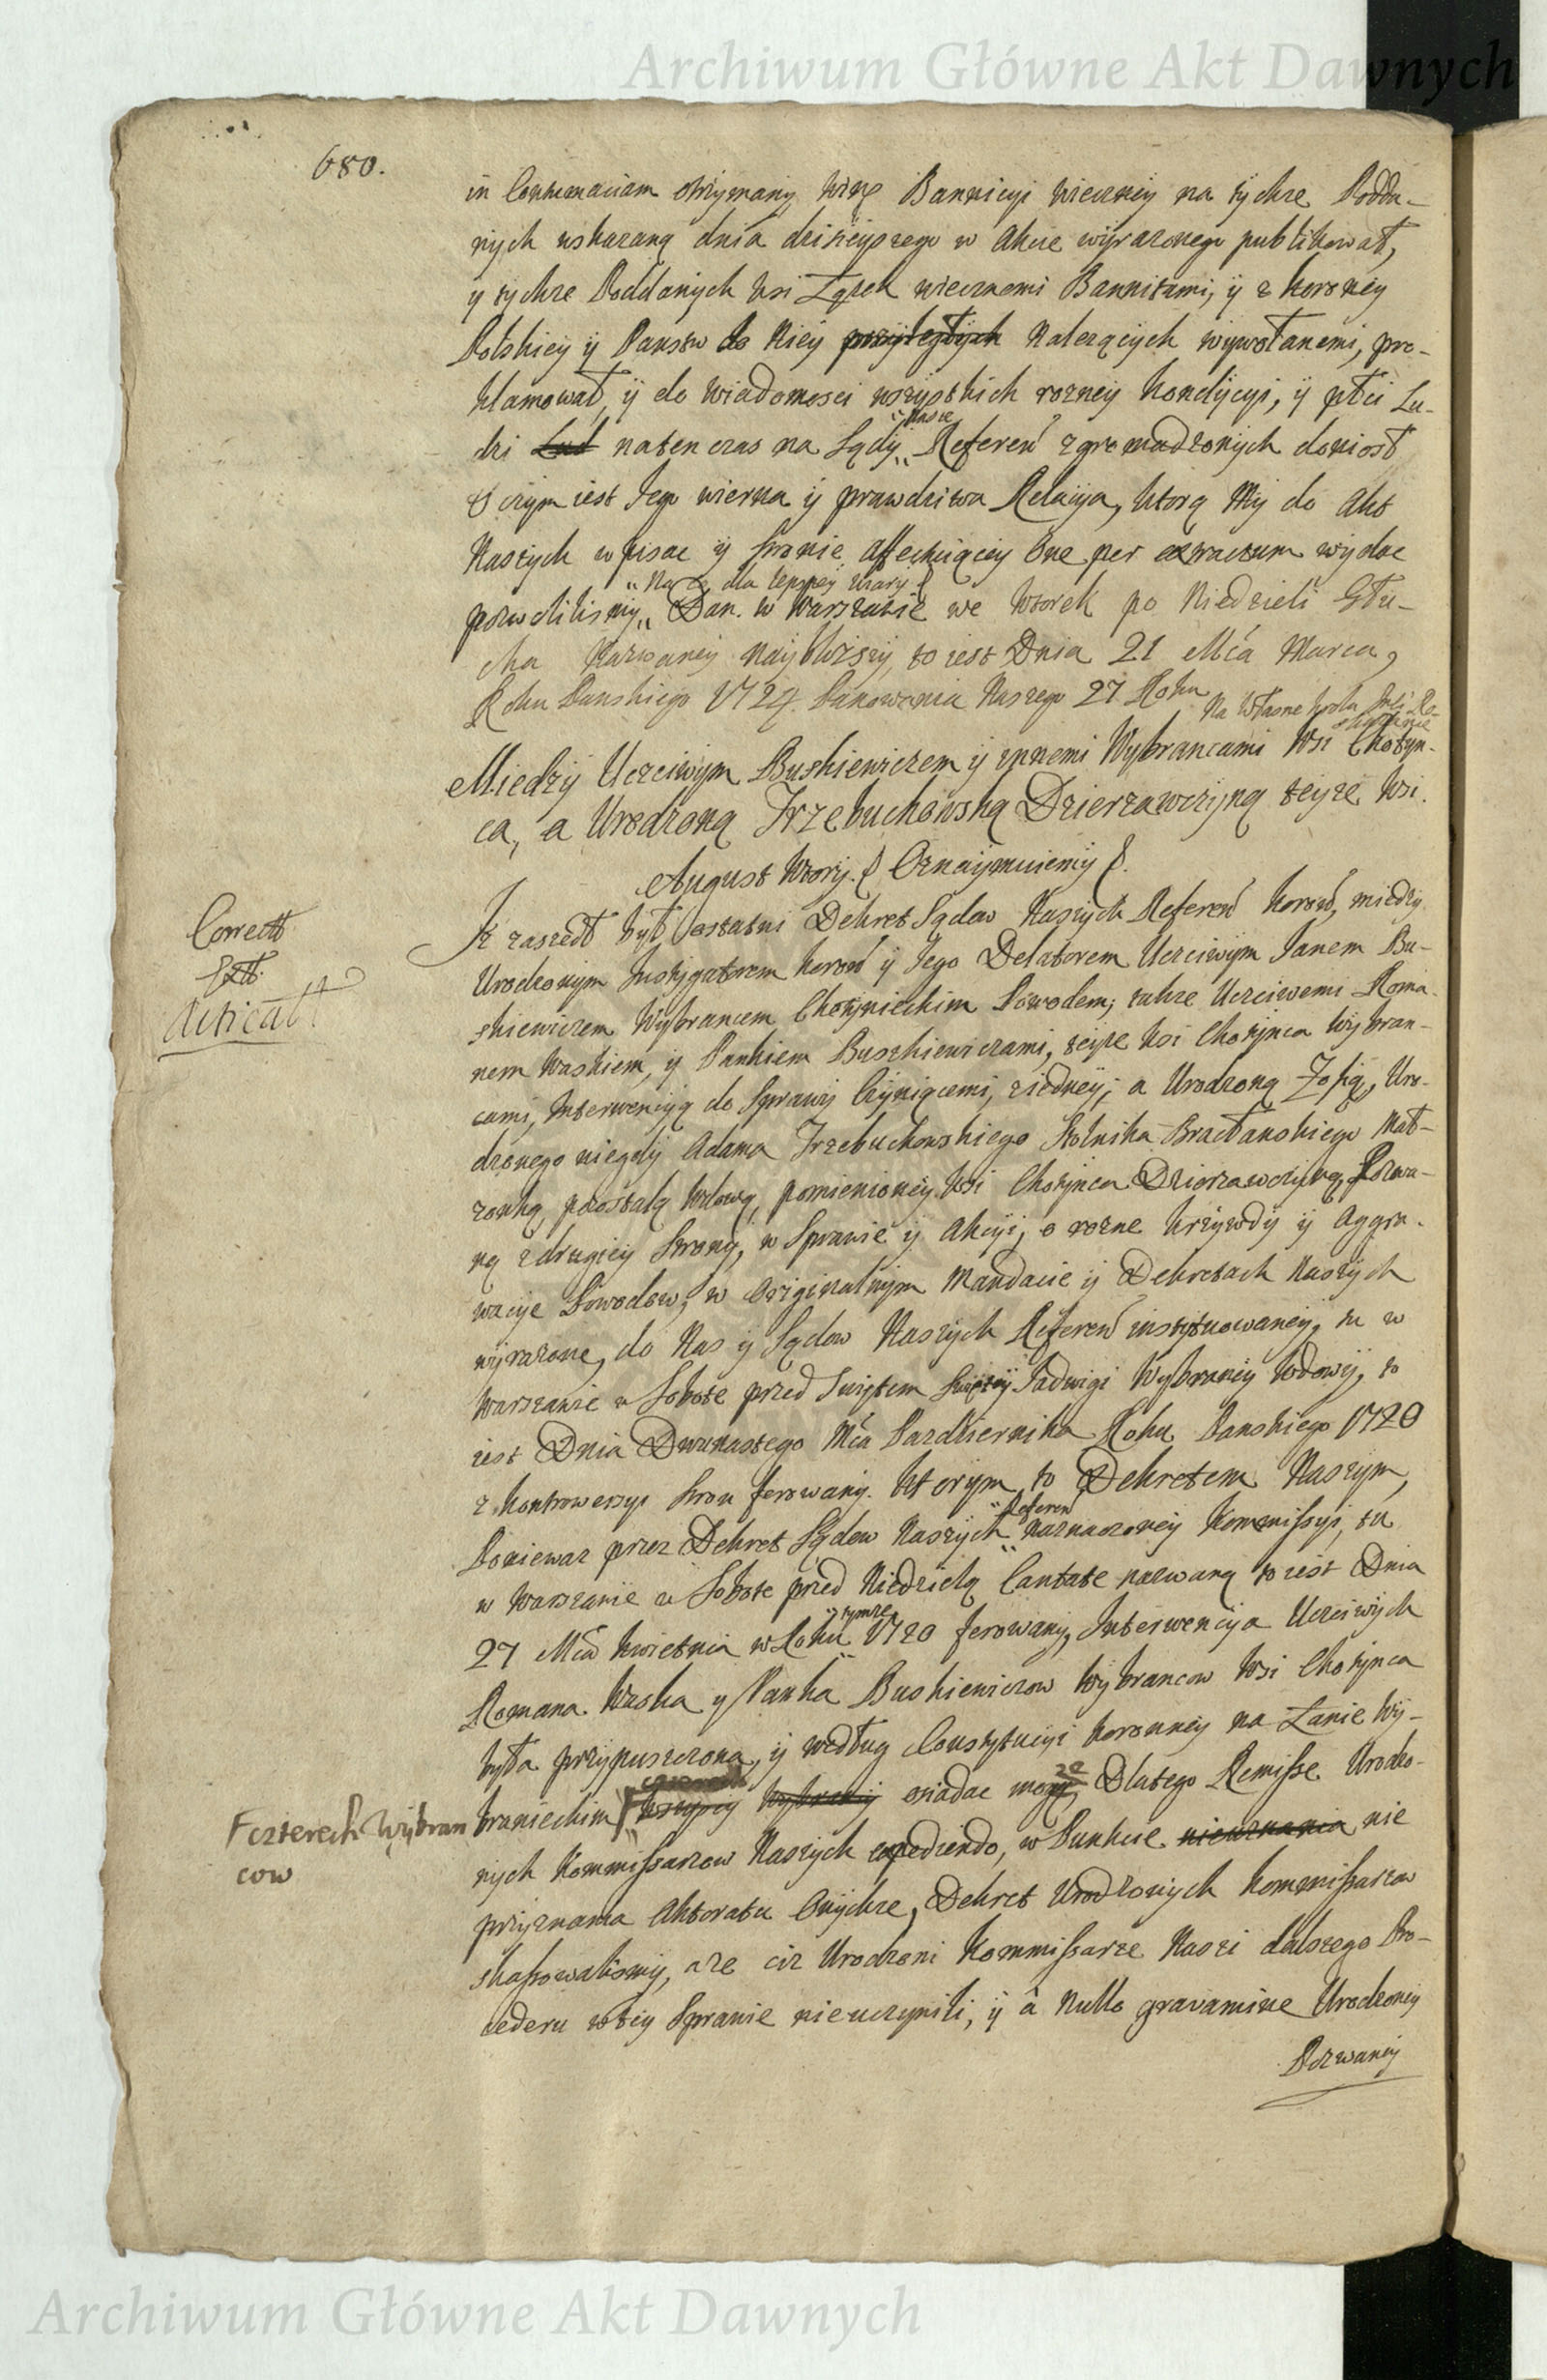 Archiwum Główne Akt Dawnych
680.
in Contumaciam otrzymany winę Bannicyi wieczney na tychze Podda-
nych wskazaną dnia dzisieyszego w Akcie wyrazonego publikował,
y tychze Poddanych wsi Łązek wiecznemi Bannitami, y z Korony
Polskiey y Panstw do Niey przyległych Nalezących wywołanemi, pro-
klamował, y do wiadomosci wszystkich rozney Kondycyi, y płci Lu-
dzi Lud natenczas na Sądy Nasze Referen zgromadzonych doniosł
O czym iest Jego wierna y prawdziwa Relacya, ktorą My do Akt
Naszych wpisac y stronie affectuiącey One per extractum wydac
pozwolilismy Na co dla lepszey wiary Dan. w Warszawie we Wtorek po Niedzieli Głu-
cha Nazwaney naybliższy to iest Dnia 21 Mca Marca,
Roku Panskiego 1724 Panowania Naszego 27 Roku
Na Własne Krola JMci Ro-
skazanie
Miedzy Uczciwym Buskiewiczem y innemi Wybrancami Wsi Chotyn-
ca, a Urodzoną Trzebuchowską Dzierzawczyną teyze Wsi.
August Wtory. Oznaymuiemy
Iz zaszedł był ostatni Dekret Sądow Naszych Referen Koron, miedzy
Correct
Extt.
Acticatt
Urodzonym Instygatorem Koron y Jego Delatorem Uczciwym Janem Bu-
skiewiczem Wybrancem Chotynieckim Powodem; takze Uczciwemi Roma-
nem Waskiem, y Pankiem Buszkiewiczami, teyze Wsi Chotynca Wybran-
cami, Interwencyą do Sprawy Czyniącemi, ziedney; a Urodzoną Zofią, Uro-
dzonego niegdy Adama Trzebuchowskiego Stolnika Bracławskiego Mał-
zonką, pozostałą Wdową, pomienioney Wsi Chotynca Dzierzawczyną, Pozwa-
ną zdrugiey Strony, w Sprawie y Akcyi, o rozne krzywdy y Aggra-
wacye Powodow, w Originalnym Mandacie y Dekretach Naszych
wyrazone, do Nas y Sądow Naszych Referen instytuowaney, tu w
Warszawie w Sobote przed Swiętem Swiętey Jadwigi Wybraney Wdowy, to
iest Dnia Dwunastego Mca Pazdziernika Roku Panskiego 1720
z Kontrowersyi stron ferowany. Ktorym to Dekretem Naszym,
Poniewaz przez Dekret Sądow Naszych Referen naznaczoney Kommissyi, tu
w Warszawie w Sobote przed Niedzielą Cantate nazwaną to iest Dnia
27 Mca Kwietnia w Roku tymze 1720 ferowany, Interwencya Uczciwych
Romana Waska y Panka Buskiewiczow Wybrancow Wsi Chotynca
była przypuszczona, y według Constytucyi Koronney na Łanie Wy-
branieckim wszyscy Wybrancy osiadac mogą Dlatego Remisse Urodzo-
F czterech Wybran
cow
nych Kommissarzow Naszych expediendo, w Punkcie nieuznania nie
przyznania Aktoratu Onychze, Dekret Urodzonych Kommissarzow
skassowalismy, aze ciz Urodzoni Kommissarze Naszi dalszego Pro-
cederu wtey Sprawie nieuczynili, y a Nullo gravamine Urodzoney
Pozwaney
Archiwum Główne Akt Dawnych